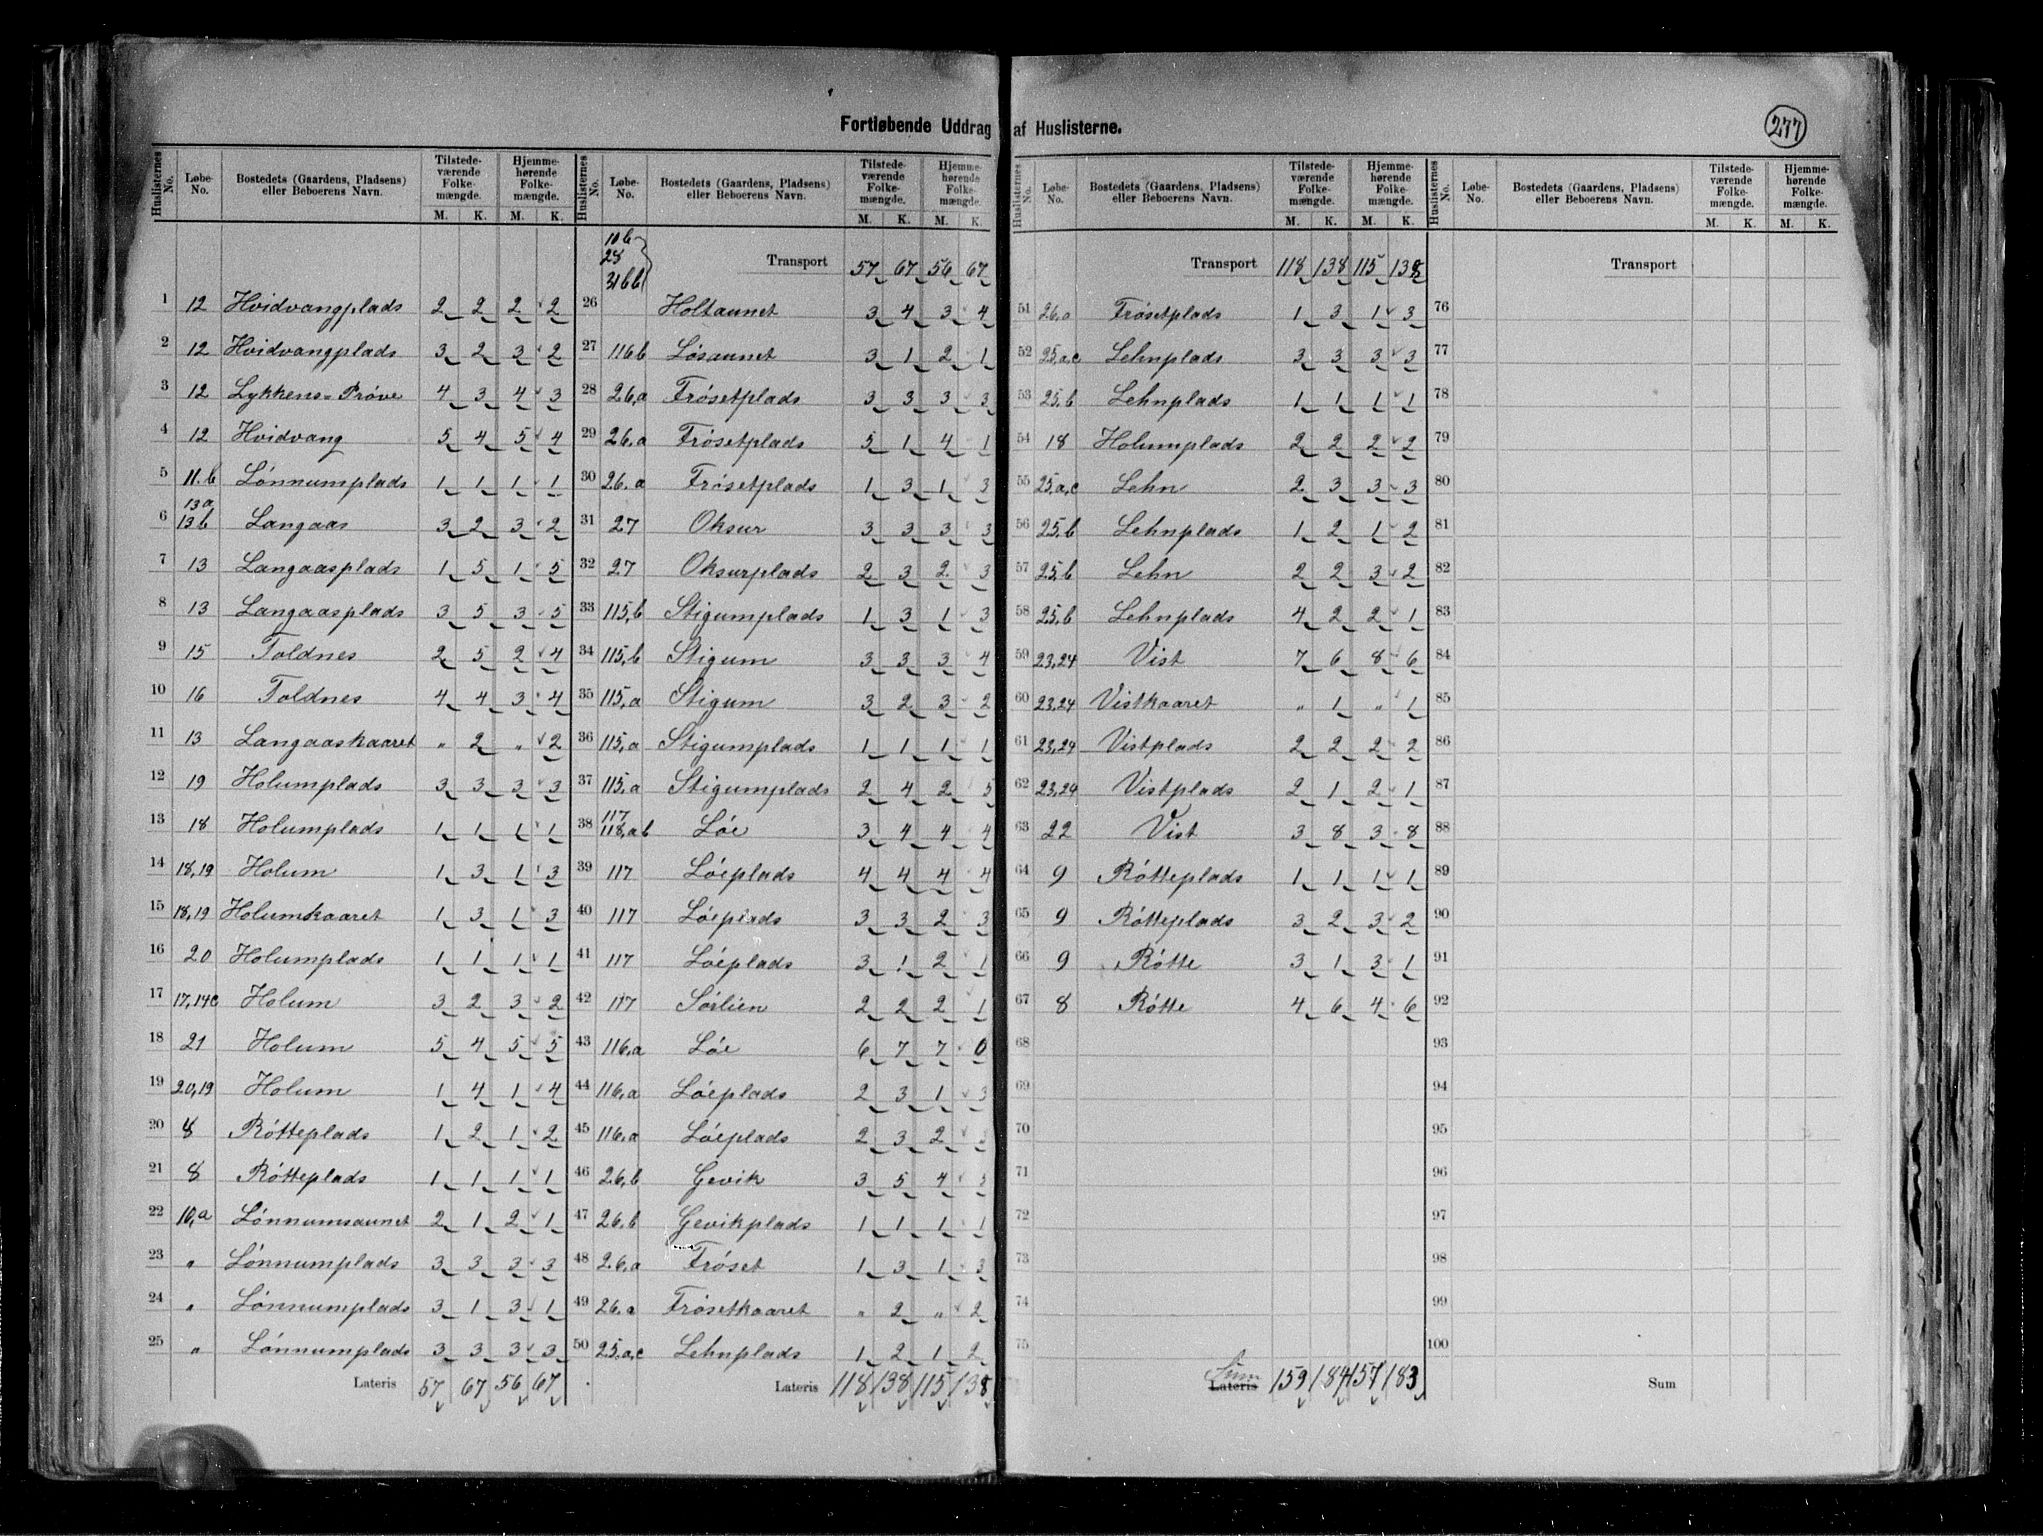 Fortløbende Uddrag af Huslisterne.
277
Huslisternes No. Løbe-No. Bostedets (Gaardens, Pladsens) eller Beboerens Navn. Tilstedeværende Folkemængde. M. K. Hjemmehørende Folkemængde. M. K.
1 12 Hvidvangplads 2 2 2 2
2 12 Hvidvangplads 3 2 3 2
3 12 Lykkens-Prøve 4 3 4 3
4 12 Hvidvang 5 4 5 4
5 11.b Lønnumplads 1 1 1 1
6 13a 13b Langaas 3 2 3 2
7 13 Langaasplads 1 5 1 5
8 13 Langaasplads 3 5 3 5
9 15 Toldnes 2 5 2 4
10 16 Toldnes 4 4 3 4
11 13 Langaaskaaret " 2 " 2
12 19 Holumplads 3 3 3 3
13 18 Holumplads 1 1 1 1
14 18,19 Holum 1 3 1 3
15 18,19 Holumkaaret 1 3 1 3
16 20 Holumplads 1 1 1 1
17 17,14c Holum 3 2 3 2
18 21 Holum 5 4 5 5
19 20,19 Holum 1 4 1 4
20 8 Røtteplads 1 2 1 2
21 8 Røtteplads 1 1 1 1
22 10,a Lønnumsaunet 2 1 2 1
23 " Lønnumplads 3 3 3 3
24 " Lønnumplads 3 1 3 1
25 " Lønnumplads 3 3 3 3
Lateris 57 67 56 67
Huslisternes No. Løbe-No. Bostedets (Gaardens, Pladsens) eller Beboerens Navn. Tilstedeværende Folkemængde. M. K. Hjemmehørende Folkemængde. M. K.
Transport 57 67 56 67
10b 28
26 Holtaunet 3 4 3 4
27 116b Løsaunet 3 1 2 1
28 26,a Frøsetplads 3 3 3 3
29 26,a Frøsetplads 5 1 4 1
30 26,a Frøsetplads 1 3 1 3
31 27 Oksur 3 3 3 3
32 27 Oksurplads 2 3 2 3
33 115,b Stigumplads 1 3 1 3
34 115,b Stigum 3 3 3 4
35 115,a Stigum 3 2 3 2
36 115,a Stigumplads 1 1 1 1
37 115,a Stigumplads 2 4 2 5
38 117 118,ab Løe 3 4 4 4
39 117 Løeplads 4 4 4 4
40 117 Løeplads 3 3 2 3
41 117 Løeplads 3 1 2 1
42 117 Sørlien 2 2 2 1
43 116,a Løe 6 7 7 0
44 116,a Løeplads 2 3 1 3
45 116,a Løeplads 2 3 2
46 26,b Gevik 3 5 4
47 26,b Gevikplads 1 1 1 1
48 26,a Frøset 1 3 1 3
49 26,a Frøsetkaaret " 2 " 2
50 25,a,c Lehnplads 1 2 1 2
Lateris 118 138 115 138
Huslisternes No. Løbe-No. Bostedets (Gaardens, Pladsens) eller Beboerens Navn. Tilstedeværende Folkemængde. M. K. Hjemmehørende Folkemængde. M. K.
Transport 118 138 115 138
51 26,a Frøsetplads 1 3 1 3
52 25,a,c Lehnplads 3 3 3 3
53 25,b Lehnplads 1 1 1 1
54 18 Holumplads 2 2 2 2
55 25,a,c Lehn 2 3 3 3
56 25,b Lehnplads 1 2 1 2
57 25,b Lehn 2 2 3 2
58 25,b Lehnplads 4 2 2 1
59 23,24 Vist 7 6 8 6
60 23,24 Vistkaaret " 1 " 1
61 23,24 Vistplads 2 2 2 2
62 23,24 Vistplads 2 1 2 1
63 22 Vist 3 8 3 8
64 9 Røtteplads 1 1 1 1
65 9 Røtteplads 3 2 3 2
66 9 Røtte 3 1 3 1
67 8 Røtte 4 6 4 6
68
69
70
71
72
73
74
75
Sum
Lateris 159 184 157 183
Huslisternes No. Løbe-No. Bostedets (Gaardens, Pladsens) eller Beboerens Navn. Tilstedeværende Folkemængde. M. K. Hjemmehørende Folkemængde. M. K.
Transport
76
77
78
79
80
81
82
83
84
85
86
87
88
89
90
91
92
93
94
95
96
97
98
99
100
Sum